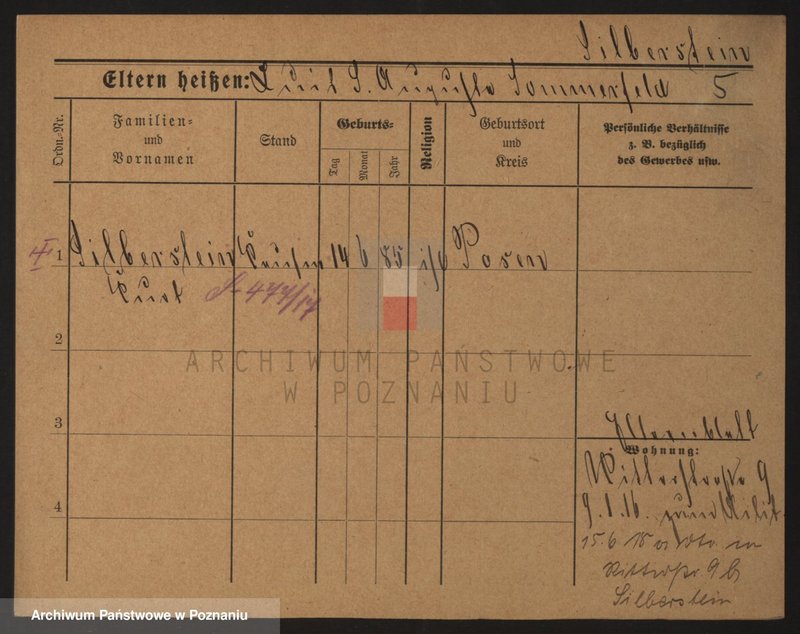 Silberstein
Eltern heißen: Louis S. Augusta Sommerfeld 5
Ordn.-Nr.
Familien-
und
Vornamen
Stand
Geburts-
Tag
Monat
Jahr
Religion
Geburtsort
und
Kreis
Persönliche Verhältnisse
z. B. bezüglich
des Gewerbes usw.
1 Silberstein Kaufm 14 6 85 Posen
Kurt
477/17
2
ARCHIWUM PAŃSTWOWE
W POZNANIU
3
Elternblatt
Wohnung:
Ritterstraße 9
4
9.1.16. zum Milit.
15.6 18
Ritterstr 9 b
Silberstein
Archiwum Państwowe w Poznaniu